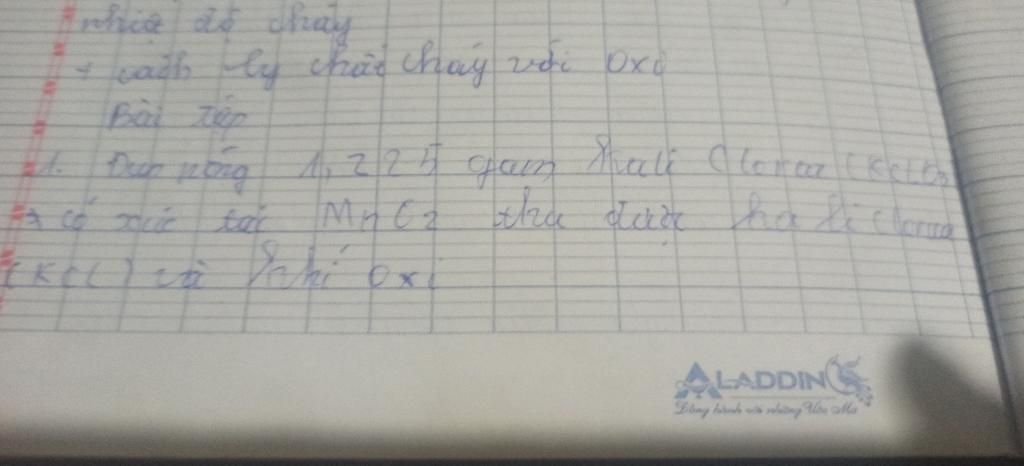 nhiệt độ cháy
+ cách ly chất cháy với oxi
Bài tập
1. Đun nóng 1,225 gam Kali Clorat (KClO3
có xúc tác MnO2 thu được kali clorua
(KCl) và khí oxi
ALADDIN
Đồng hành với những Ước Mơ